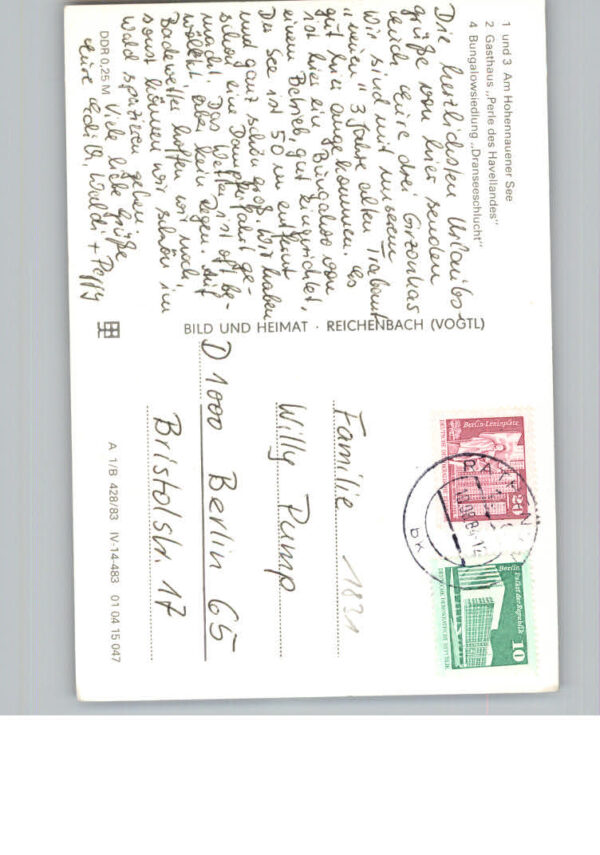 1 und 3 Am Hohennauener See
2 Gasthaus „Perle des Havellandes"
4 Bungalowsiedlung „Dranseeschlucht"
Die herzlichsten Urlaubs-
grüße von hier senden
Euch Eure drei
Wir sind mit unserem
"neuen" 3 Jahre alten Trabant
gut hier angekommen. Es
ist hier ein Bungalow von
einem Betrieb, gut eingerichtet.
Der See ist 50 m entfernt
und ganz schön groß. Wir haben
schon eine Dampferfahrt ge-
macht. Das Wetter ist oft be-
wölkt aber kein Regen. Auf
Badewetter hoffen wir noch,
sonst können wir schön im
Wald spazieren gehen.
Viele liebe Grüße
Eure Edith, Waldi + Peggy
DDR 0,25 M
BILD UND HEIMAT · REICHENBACH (VOGTL)
Berlin-Leninplatz
DEUTSCHE DEMOKRATISCHE
20
Berlin
Palast der Republik
DEUTSCHE DEMOKRATISCHE REPUBLIK
10
bk
Familie
1831
Willy Pump
D 1000 Berlin 65
Bristolstr. 17
A 1/B 428/83 IV-14-483 01 04 15 047